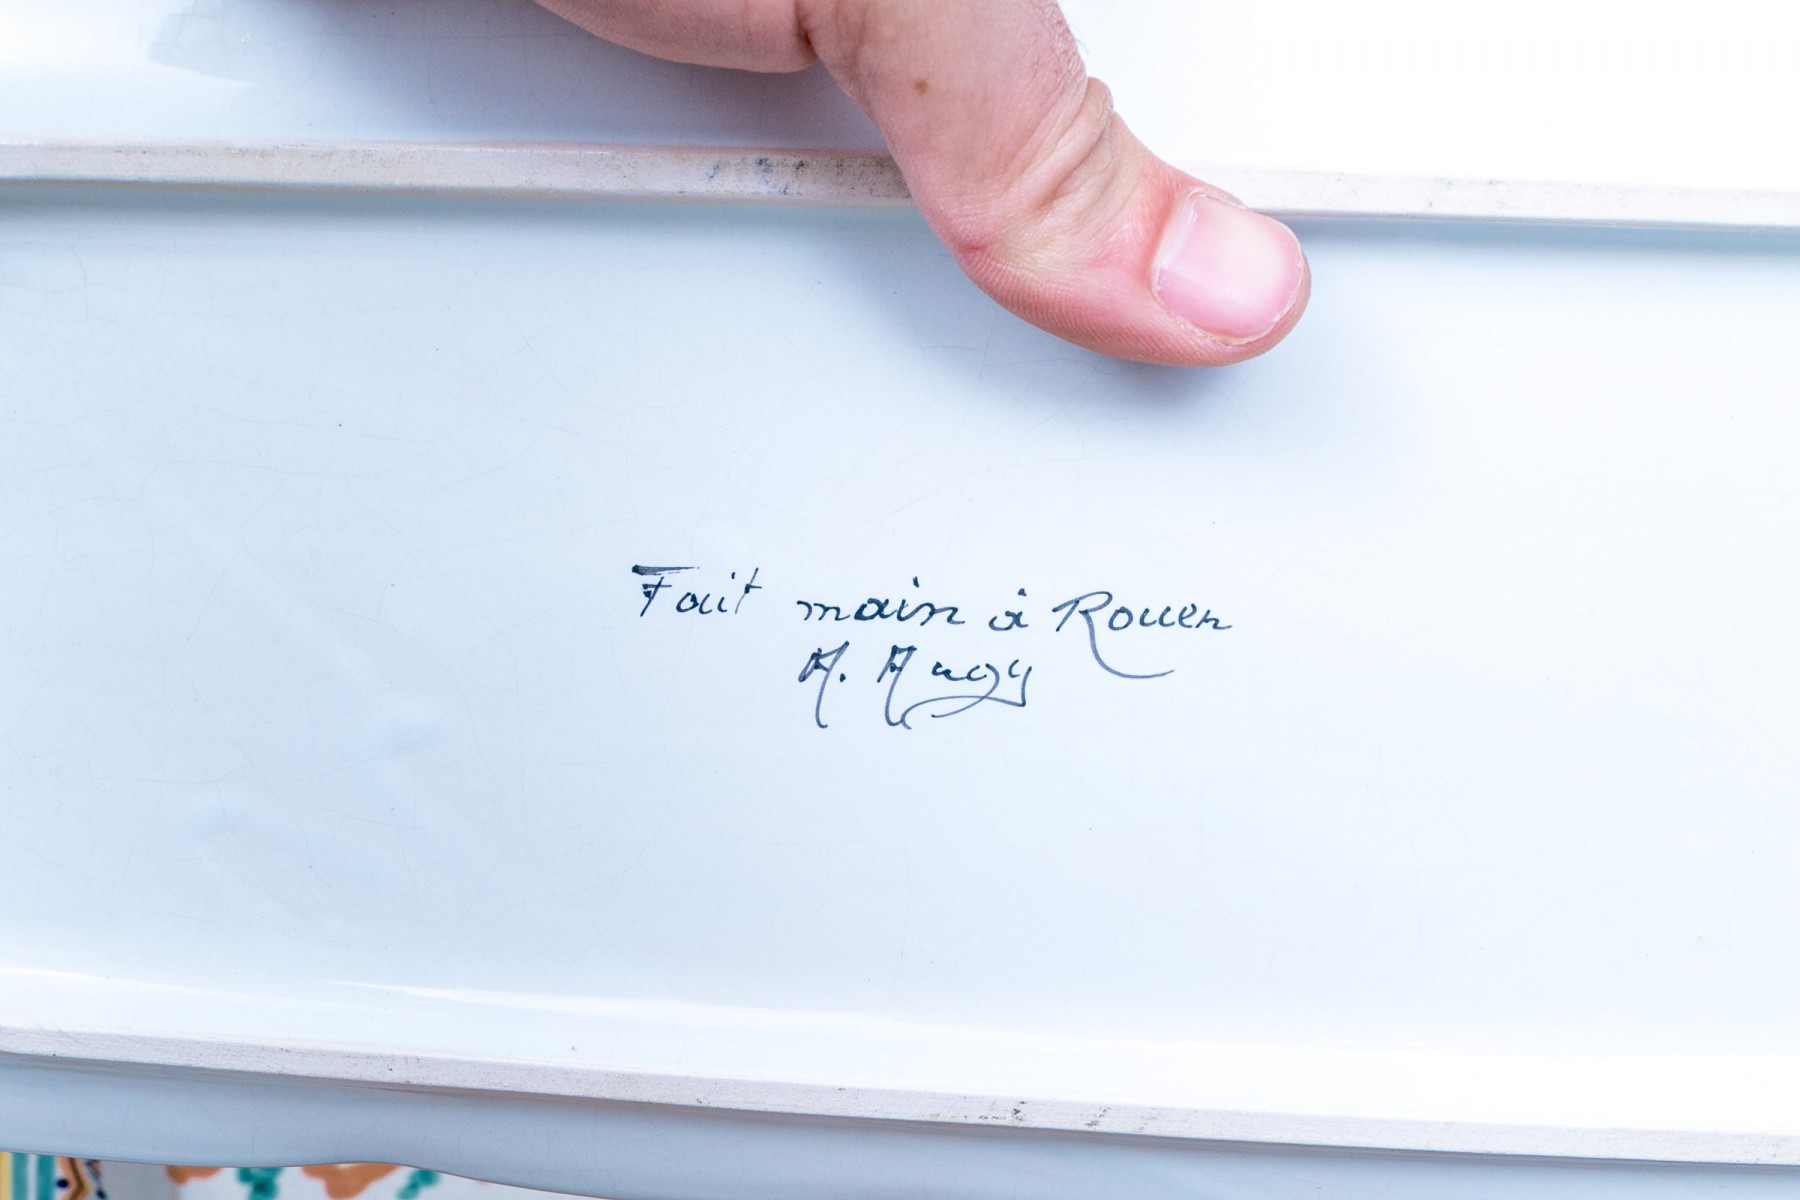 Fait main à Rouen
A. Augy